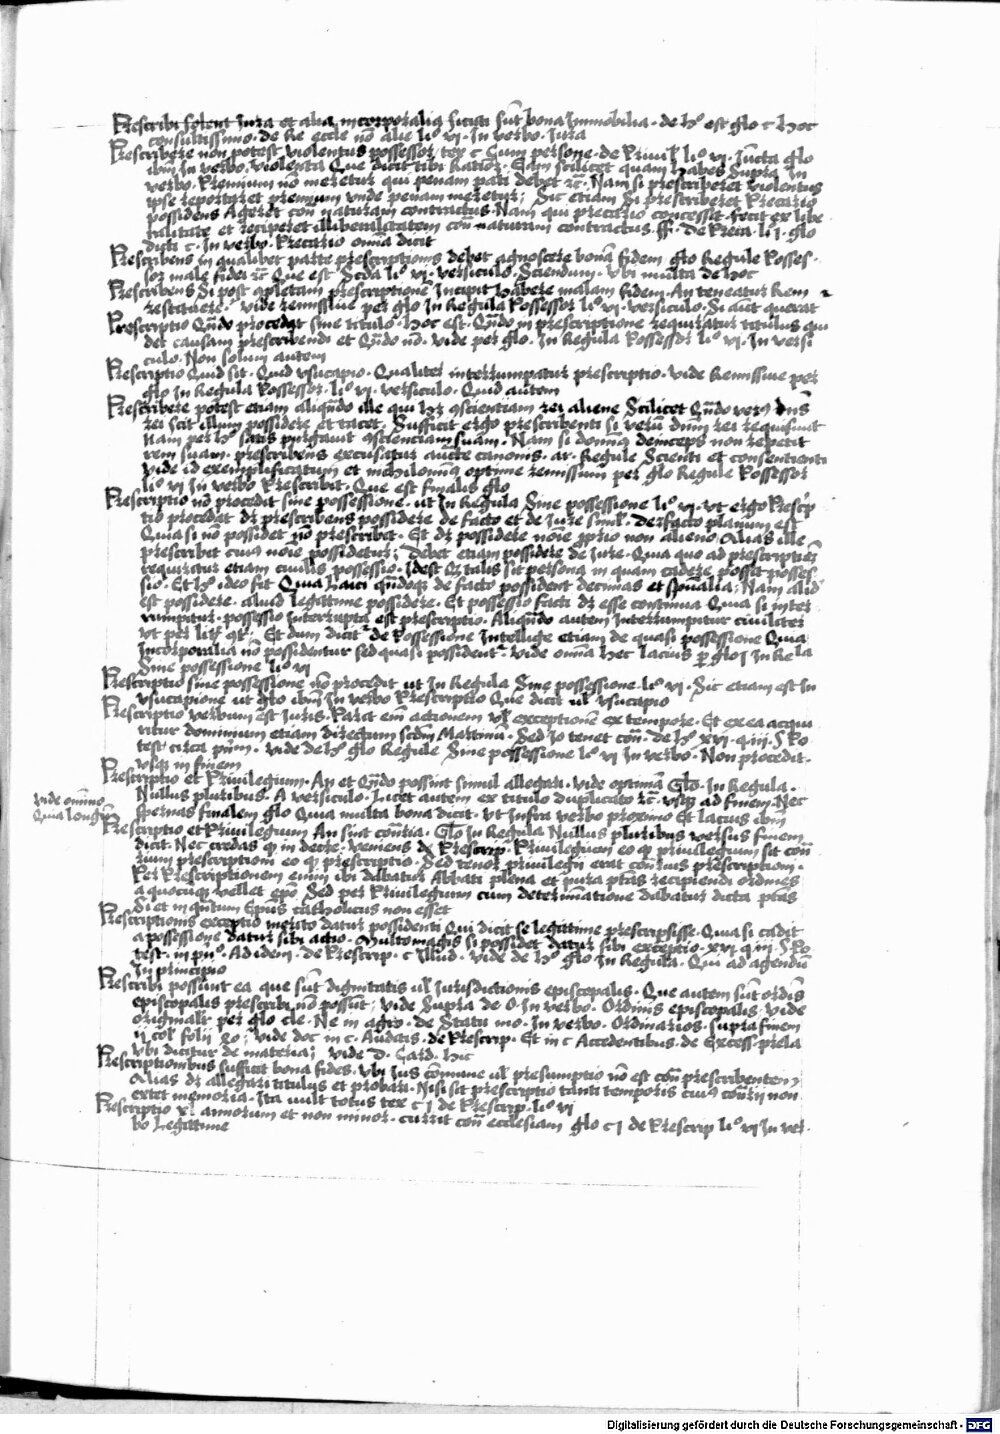 Prescribi solent Jura et alia incorporalia sicuti sūt bona Immobilia · de hº est glo c hoc
consultissimo · de Re eccle nō alie liº vi · In verbo · Jura
Prescribere non potest violentus possessor tex c Cum persone · de Privil liº vi · Juncta glo
ibm In verbo · violenta Que dicit tibi Ratiōz · Eam scilicet quam habes Supra In
verbo · Premium nō meretur qui penam pati debet zc · Nam si prescriberet violentus
ipse reportaret premium unde penam meretur; Sic etiam Si prescriberet Precario
possidens Ageret con naturam contractus · Nam qui precario concessit · fecit ex libe
ralitate et reciperet illiberalitatem con naturam contractus · ff · de Preca · li j · glo
dicti c · In verbo · Precario omnia dicit
Prescribens in qualibet parte prescriptionis debet agnoscere bonā fidem glo Regule Posses ·
sor male fidei Que est Scda liº vi · versiculo · Sciendum · Ubi multa de hoc
Prescribens Si post cpletam prescriptionē Incipit habere malam fidem · An teneatur Rem
restituere · vide remissiue per glo In Regula Possessor liº vi · versiculo · Si aūt querat
Prescriptio Qn̄do procedat sine titulo · hoc est · Qn̄do in prescriptione requiratur titulus qui
det causam prescribendi et Qn̄do nō · vide per glo · In Regula Possessor liº vi · In versi
culo · Non solum autem
Prescriptio Quid sit · Quid vsucapio · Qualiter interrumpatur prescriptio · vide Remissiue per
glo In Regula Possessor · liº vi · versiculo · Quid autem
Prescribere potest etiam aliqn̄do ille qui hz cscientiam rei aliene Scilicet Qn̄do verº dn̄s
rei scit illum possidere et tacet · Sufficit ergo prescribenti si verū dnm rei requisiuit
Nam per hº satis purgauit cscienciam suam · Nam si domnº deinceps non repetit
rem suam · prescribens excusatur aucte canonis · ar · Regule Scienti et consentienti
vide id exemplificatum et nichilominº optime remissium per glo Regule Possessor
liº vi In verbo Prescribit · Que est finalis glo
Prescriptio nō procedit sine possessione · ut In Regula Sine possessione liº · vi · Vt ergo Prescrip
tio procedat dz prescribens possidere de facto et de Jure simlˀ · De facto planum est
Quia si nō possidet nō prescribet · Et dz possidere noīe pprio non alieno Alias ille
prescribit cuiº noīe possidetur; Debet etiam possidere de Jure · Quia quo ad prescriptiōē
requiratur etiam ciuilis possessio · Idest Qz talis sit persona in quam cadere possit posses
sio · Et hº ideo fit Quia Laici qn̄doqz de facto possident decimas et spūalia; Nam aliud
est possidere · aliud legittime possidere · Et possessio facti dz esse continua Quia si inter
rumpitur · possessio Interrupta est prescriptio · Aliqn̄do autem Interrumpitur ciuiliter
vt per lit Et dum dicitr de Possessione Intellige etiam de quasi possessione Quia
Incorporalia nō possidentur sed quasi possidentr · vide omnia hec lacius p gloj In Re la
Sine possessione liº vi
Prescriptio sine possessione nō procedit ut In Regula Sine possessione · liº vi · Sic etiam est In
vsucapione ut glo ibm In verbo Prescriptio Que dicit ul vsucapio
Prescriptio verbum est Juris · Parit enī actionem vl exceptionē ex tempore · Et ex ea acqui
ritur dominium etiam directum scdm Martinū · Sed Jo tenet con · de hº xvi · q iii · S Po
test circa pn̄m · vide de hº glo Regule Sine possessione liº vi In verbo · Non procedit ·
vsqz in finem
Prescriptio et Priuilegium · An et Qn̄do possint simul allegari · vide optimā Glo · In Regula ·
Nullus pluribus · A versiculo · Licet autem ex titulo duplicato zc · vsqz ad finem · Nec
spernas finalem glo Quia multa bona dicit · Vt Infra verbo proximo Et lacius ibm
Vide omnino
Quia longum
Prescriptio et Priuilegium An sint con̄ria · Glo In Regula Nullus pluribus versus finem
dicit · Nec credas qz in decre · Veniens de Prescrip · Priuilegium eo qz priuilegium sit con̄
rium prescriptioni eo qz prescriptio · Sed tenor priuilegii erat con̄rius prescriptioni ·
Per Prescriptionem enim ibi dabatur Abbati plena et pura ptās recipiendi ordines
a quocūqz vellet epō · Sed per Priuilegium cum determinatione dabatur dicta ptās
Si et in qn̄tum Epūs catholicus non esset
Prescriptionis exceptio merito datur possidenti Qui dicit se legittime prescripsisse · Quia si cadit
a possessione datur sibi actio · Multomagis si possidet datur sibi exceptio · xvi q iii · S Po
test · in pnº · Ad idem · de Prescrip · c Illud · vide de hº glo In Regula · Qui ad agendū
In principio
Prescribi possunt ea que sūt dignitatis ul Jurisdictionis episcopalis · Que autem sūt ordis
episcopalis prescribi nō possūt; vide Supra de O · In verbo · Ordinis episcopalis · vide
originalr per glo cle · Ne in agro · de Statu mo · In verbo · Ordinarios · supra finem
ij col folii 20; vide doc in c · Auditis · de Prescrip · Et in c Accedentibus · de Excess · prela
Vbi dicitur de materia; vide D · Card · hic
Prescriptionibus sufficit bona fides · Vbi Jus cōmune ul presumptio nō est con̄ prescribentem
Alias dz allegari titulus et probari · Nisi sit prescriptio tanti temporis cuiº con̄rii non
extet memoria · Ita uult totus tex c j de Prescrip · liº vi
Prescriptio xl annorum et non minor · currit con̄ ecclesiam glo c j de Prescrip liº vi In ver ·
bo Legittime
Digitalisierung gefördert durch die Deutsche Forschungsgemeinschaft - DFG